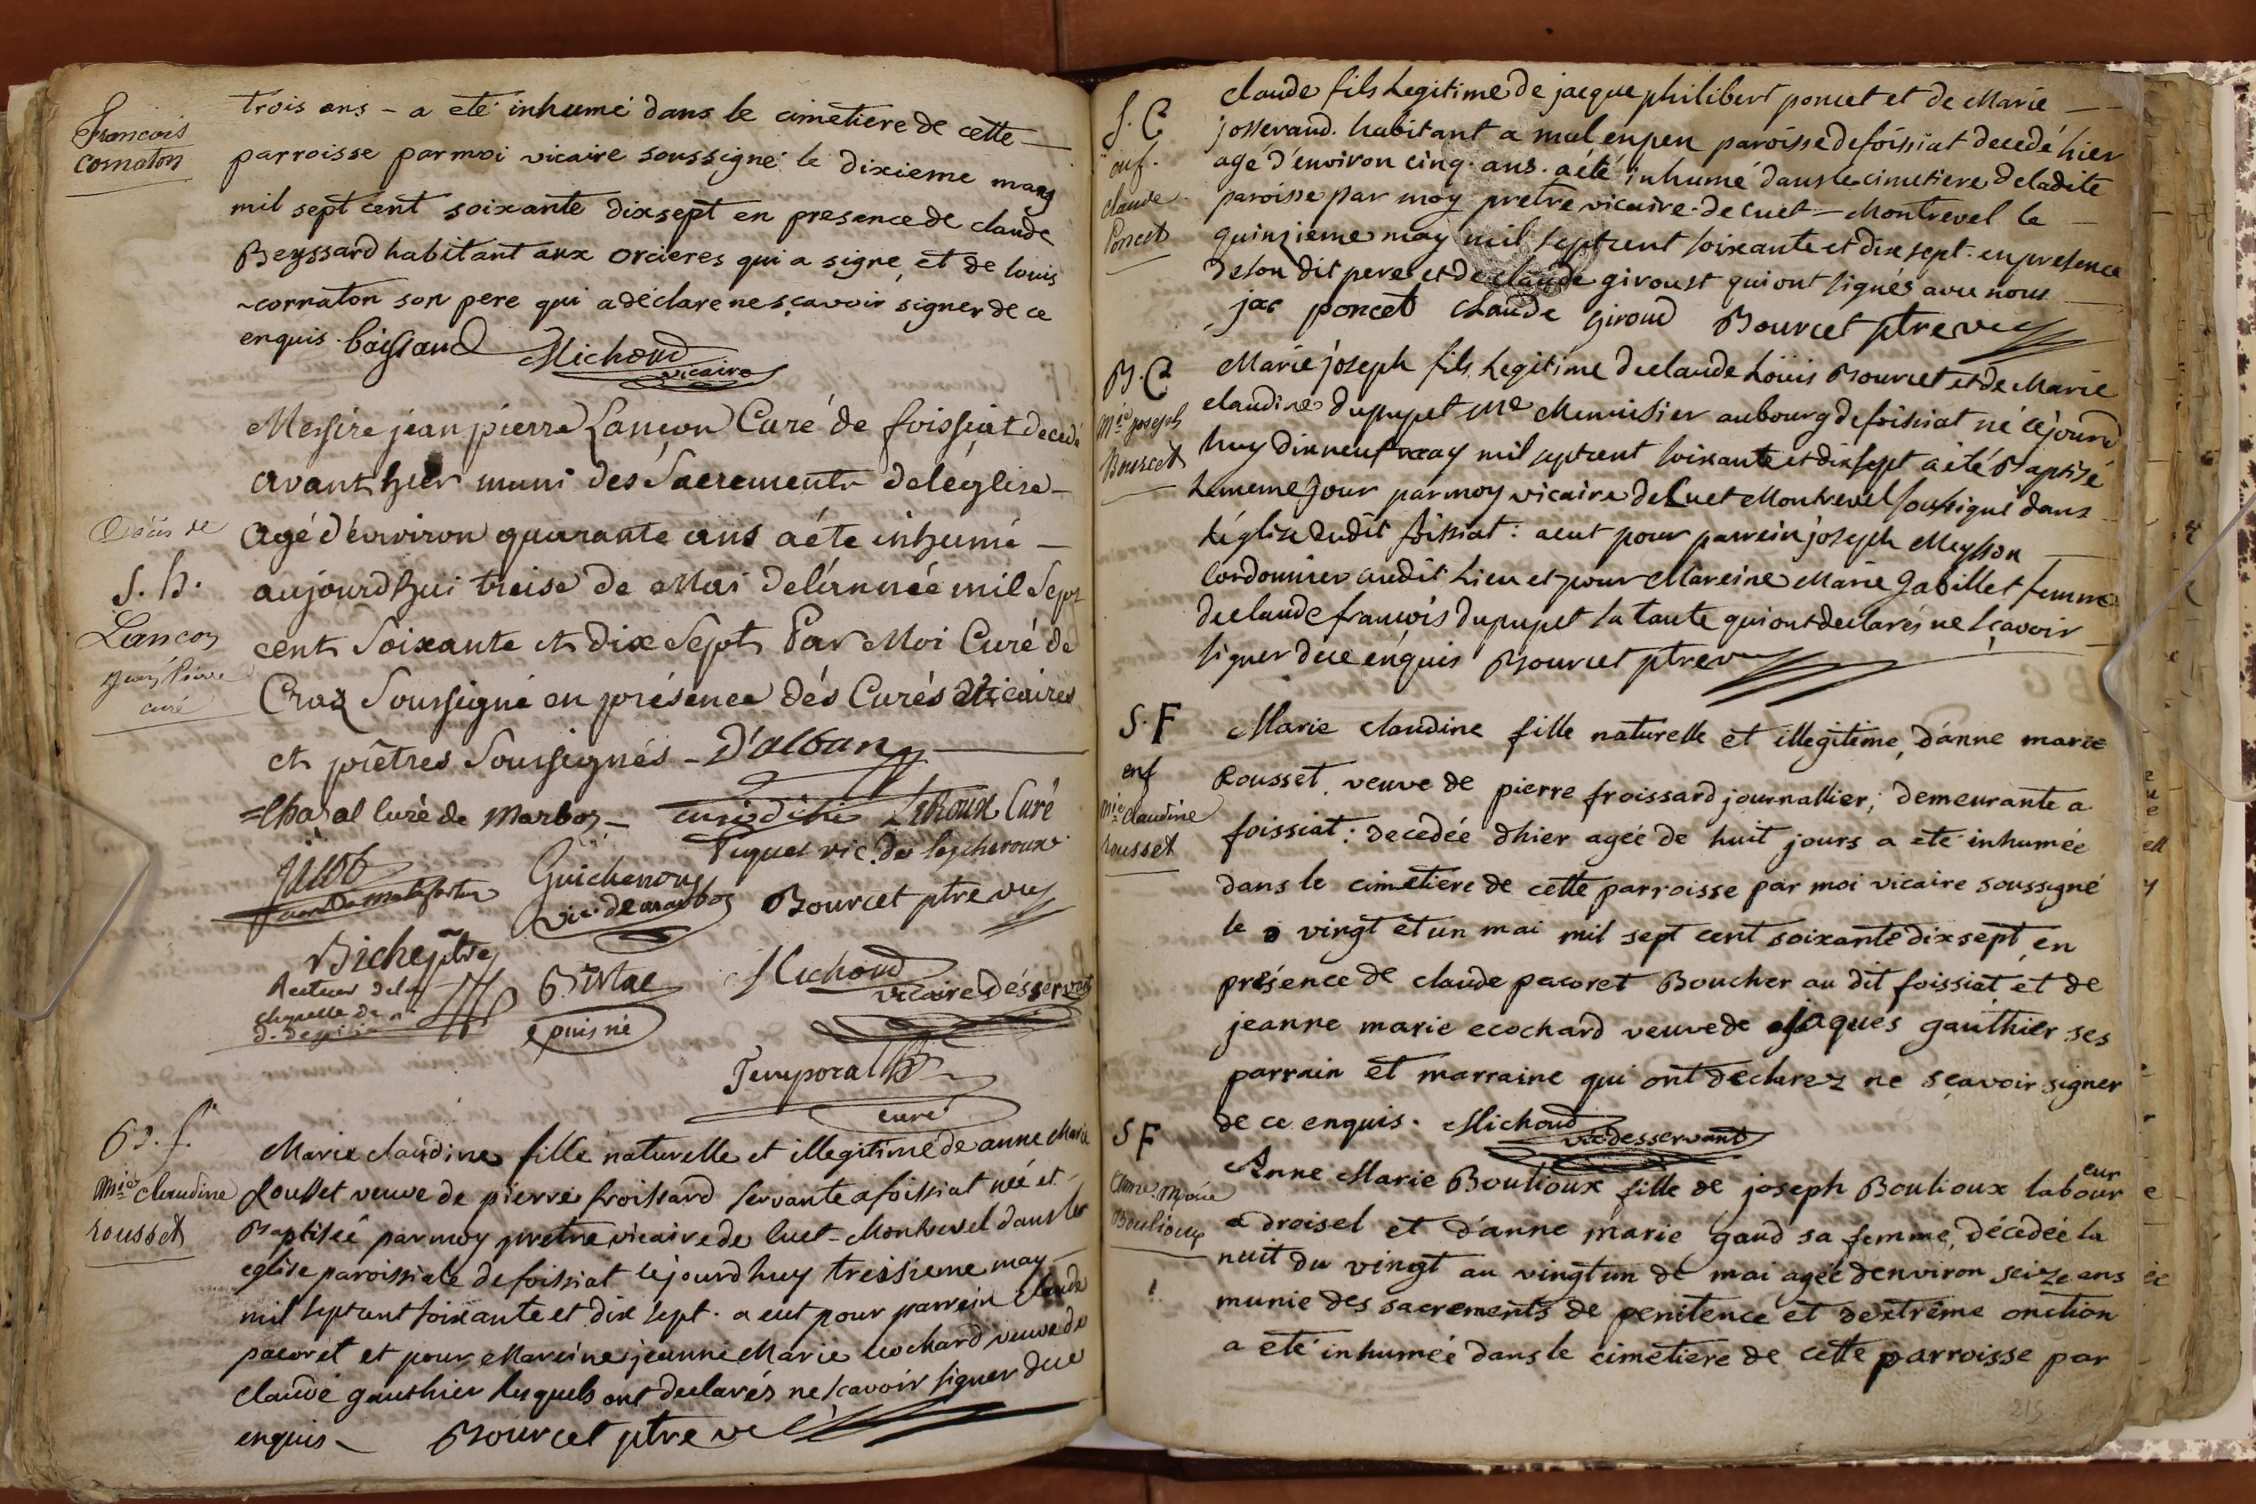 François
cornaton
trois ans - a eté inhumé dans le cimetiere de cette
parroisse par moi vicaire soussigné le dixieme mars
mil sept cent soixante dixsept en presence de claude
Beyssard habitant aux orcieres qui a signé, et de louis
cornaton son pere qui a déclare ne sçavoir signer de ce
enquis. baissard Michoud
vicaire
Messire jean pierre Lançon Curé de foissiat decedé
avant hier muni des Sacrements de l'églize
agé d'environ quarante ans a éte inhumé
aujourdhui treise de Mai de l'année mil Sept
cent Soixante et dix Sept Par Moi Curé de
Craz Soussigné en présence dés Curés Vicaires
et prêtres Soussignés - D'alban
S. h.
Lançon
jean Pierre
curé
Chazal Curé de Marboz - Leroux Curé
Piquet vic. de lescheroux
Guichenon
vic. de marboz Bourcet ptre vic
Biche ptre
Recteur de la
chapelle de n
puisné
Michoud
vicaire Désservant
Temporal
curé
B. f.
Mie claudine
rousset
Marie claudine fille naturelle et illegitime de anne Marie
Rousset veuve de pierre froissard servante a foissiat née et
Baptisée par moy pretre vicaire de Cuet - Montrevel dans les
eglise paroissiale de foissiat cejourdhuy treisieme may
mil sept cent soixante et dix sept. a eut pour parrein claude
pacoret et pour Mareine jeanne Marie ecochard veuve de
claude gauthier lesquels ont declarés ne sçavoir signer de ce
enquis - Bourcet ptre vic
S. C
enf.
claude
Poncet
claude fils Legitime de jacque philibert poncet et de Marie
josserand. habitant a malenpen paroisse de foissiat decedé hier
agé d'environ cinq. ans. a été inhumé dans le cimetiere de ladite
paroisse par moy pretre vicaire de Cuet - Montrevel le
quinzieme may mil sept cent soixante et dix sept. en presence
de son dit pere et de claude giroust qui ont signés avec nous
jac poncet claude giroud Bourcet ptre vic
B. C
Mie joseph
Bourcet
Marie joseph fils Legitime de claude Loüis Bourcet et de Marie
claudine dupupet Me Menuisier au bourg de foissiat né cejourd
huy dixneuf may mil sept cent soixante et dix sept a été Baptisé
Le meme jour par moy vicaire de Cuet Montrevel soussigné dans
L'églize dudit foissiat : a eut pour parrein joseph Meysson
Cordonnier audit Lieu et pour Mareine Marie gabillet femme
de claude françois dupupet sa tante qui ont declarés ne sçavoir
signer de ce enquis Bourcet ptre v
S. F
enf
Mie claudine
rousset
Marie claudine fille naturelle et illegitime, d'anne marie
Rousset, veuve de pierre froissard journallier, demeurante a
foissiat : decedée dhier agée de huit jours a eté inhumée
dans le cimetiere de cette parroisse par moi vicaire soussigné
le vingt et un mai mil sept cent soixante dixsept, en
présence de claude pacoret Boucher au dit foissiat et de
jeanne marie ecochard veuve de jaques gauthier ses
parrain et marraine qui ont declarez ne sçavoir signer
de ce enquis. Michoud
vic desservant
S F
anne Marie
Boulioux
Anne Marie Boulioux fille de joseph Boulioux laboureur
a droisel et d'anne marie gaud sa femme, décedée la
nuit du vingt au vingt un de mai agée denviron seize ans
munie des sacrements de penitence et dextrême onction
a eté inhumée dans le cimetiere de cette parroisse par
215